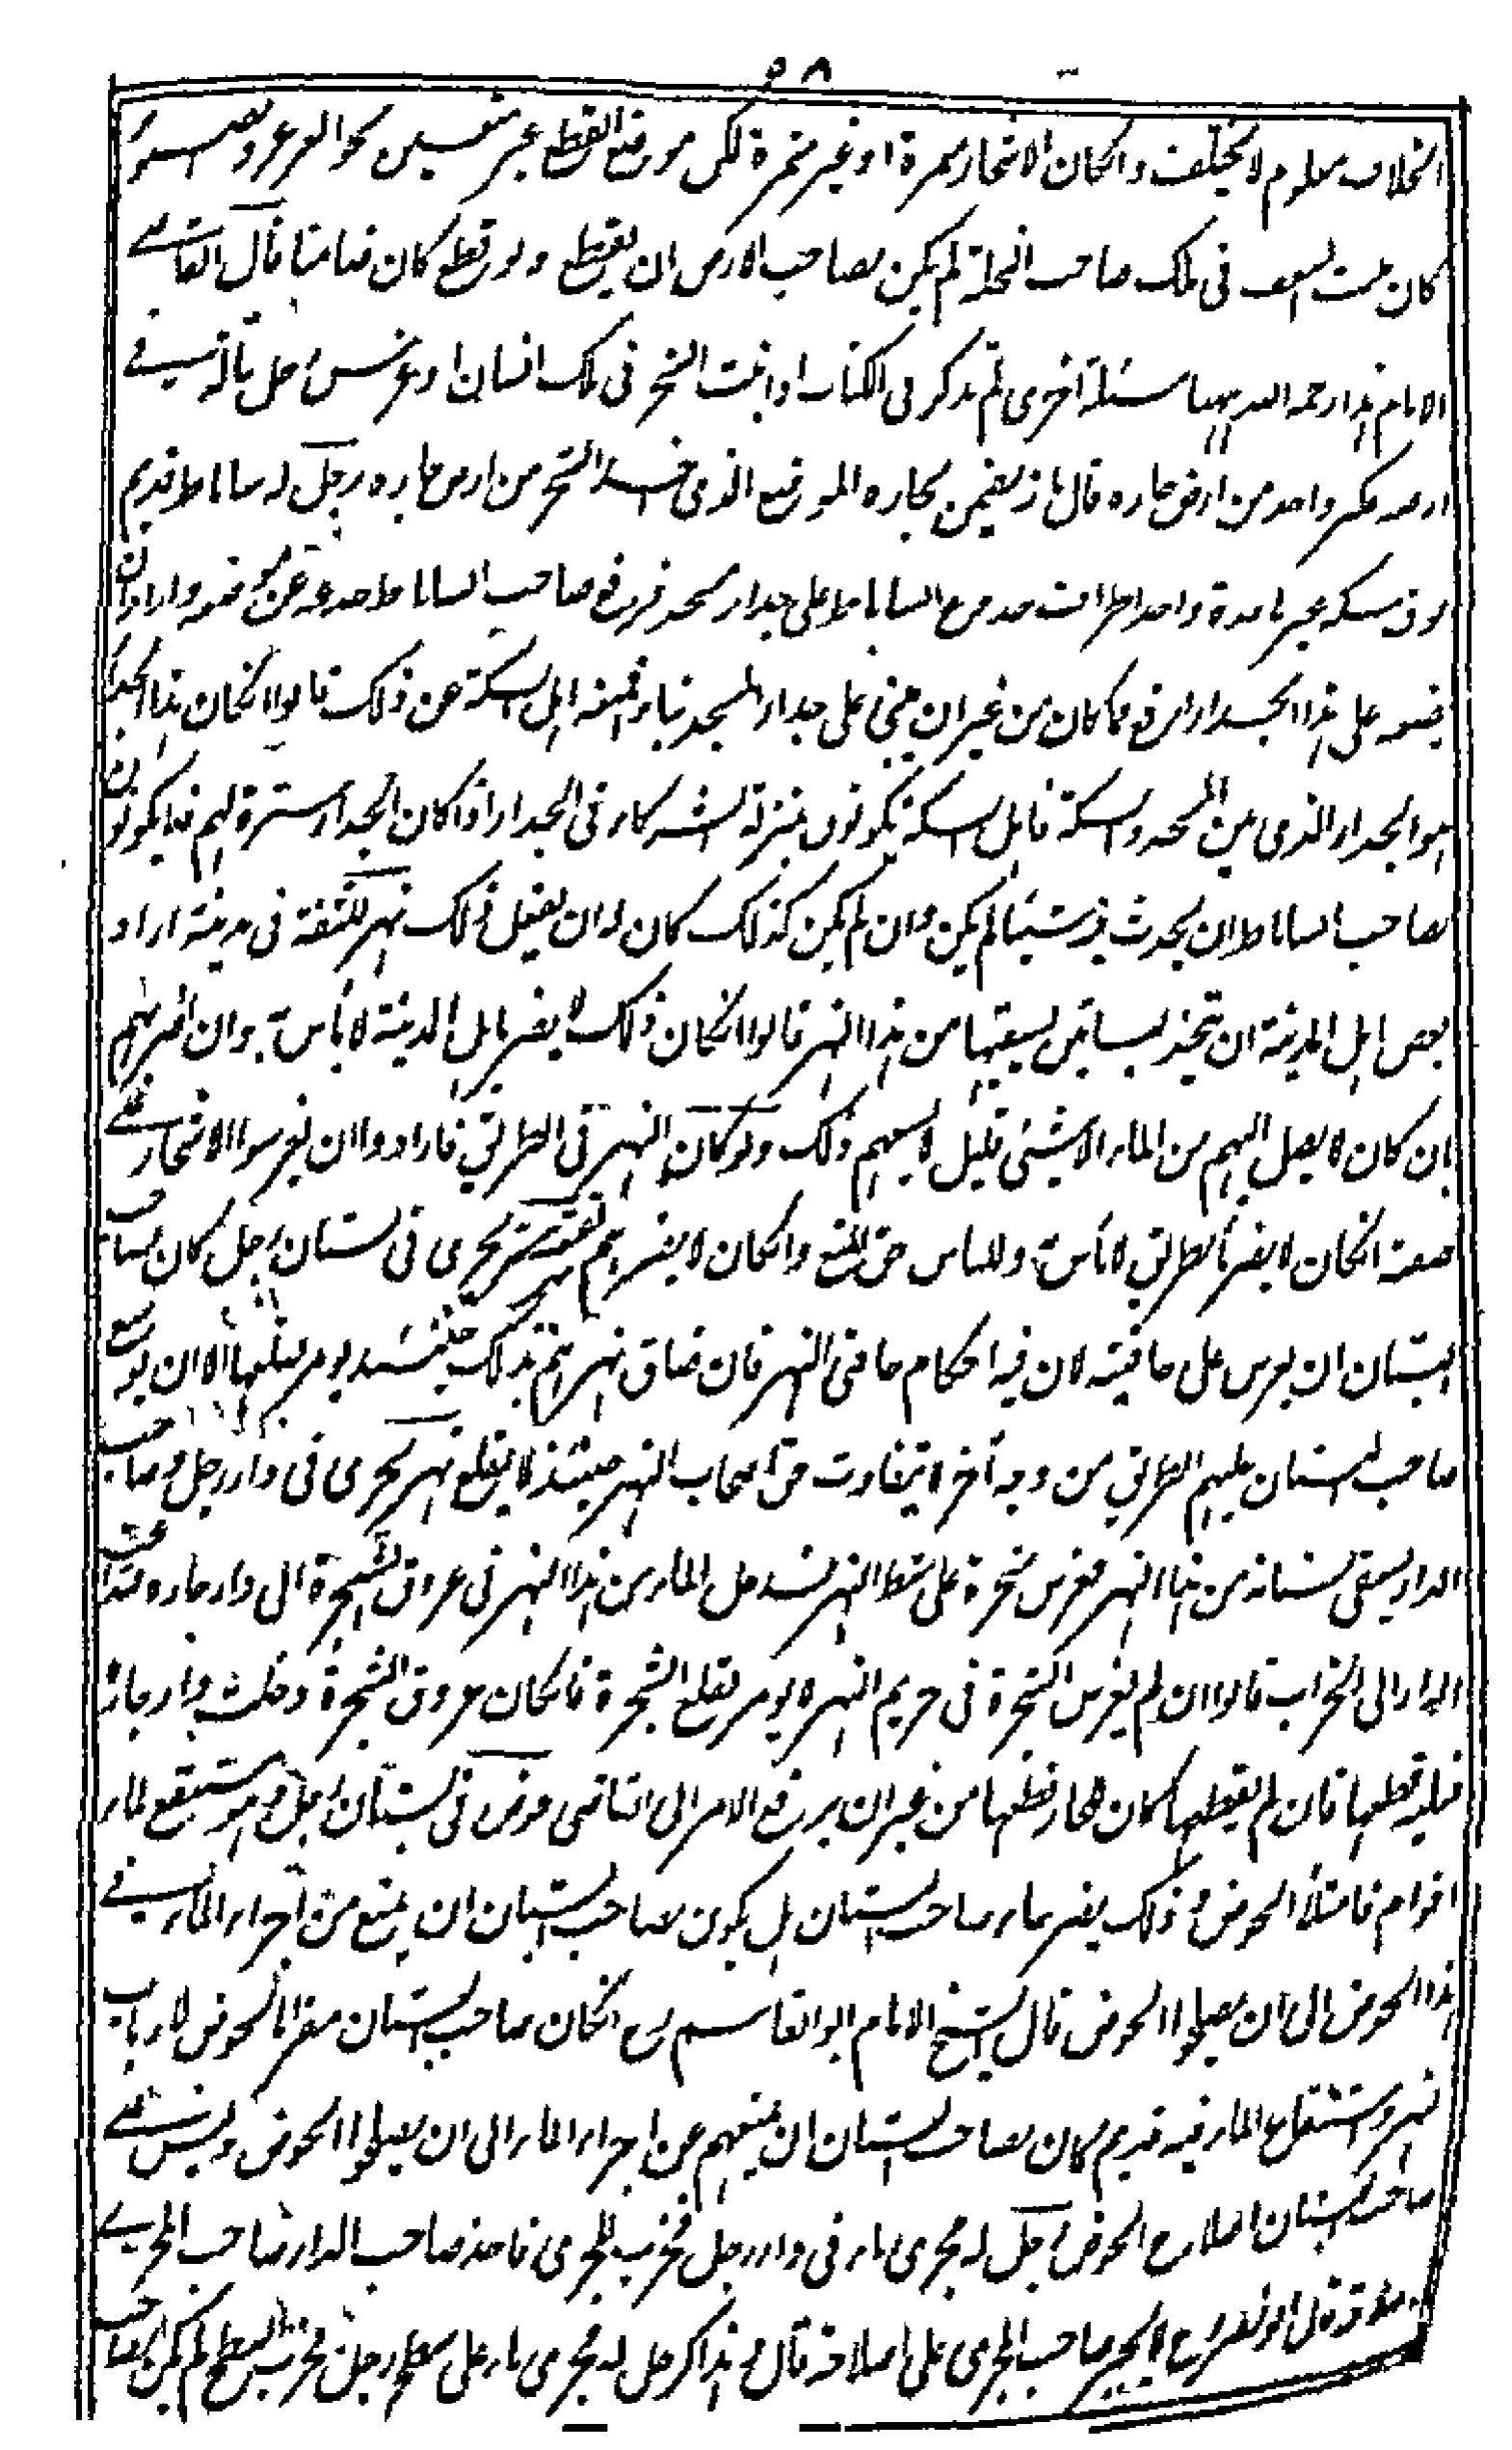 ٥٨
الخلاف معلوم لا يختلف وان كان الاشجار مثمرة او غير مثمرة لكن موضع القطع غير متعين نحو العرعر
كان نبت السعف فى ملك صاحب النخلة لم يكن لصاحب الارض ان يقطع ولو قطع كان ضامنا قال القاضى
الامام هذا رحمه الله ههنا مسئلة اخرى لم تذكر فى الكتاب اذا نبت الشجر فى ملك انسان او غرس رجل تالة فى
ارضه فكبر واحد من ارض جاره قال يضمن لجاره الموضع الذى الشجر من ارض جاره رجل له ساباط قديم
فى سكة غير نافذة واحد اطراف جذوع الساباط على جدار مسجد فرفع صاحب الساباط جذوعه عن موضعه واراد ان
يضعه على هذا الجدار ارفع مما كان من غير ان يبنى على جدار المسجد بناء فمنعه اهل السكة عن ذلك قالوا ان كان هذا الجدار
هو الجدار الذى بين المسجد والسكة فاهل السكة يكونون بمنزلة الشركاء فى الجدار اذا كان الجدار سترة لهم فلا يكون
لصاحب الساباط ان يحدث فيه شيئا لم يكن وان لم يكن كذلك كان له ان يفعل ذلك نهر للشفة فى مدينة اراد
بعض اهل المدينة ان يتخذ بساتين يسقيها من هذا النهر قالوا ان كان ذلك لا يضر باهل المدينة لا بأس به وان اضر بهم
بان كان لا يصل اليهم من الماء الا شيئ قليل لا يسعهم ذلك ولو كان النهر فى الطريق فارادوا ان يغرسوا الاشجار على
ضفته ان كان لا يضر بالطريق لا بأس به وللناس حق المنع وان كان لا يضر بهم نهر يجرى فى بستان رجل كان لصاحب
البستان ان يغرس على حافتيه لان فيه احكام حافتى النهر فان ضاق نهرهم بذلك حينئذ يؤمر بقلعها الا ان يوسع
صاحب البستان عليهم الطريق من وجه آخر لا يتفاوت حق اصحاب النهر حينئذ لا يقلع نهر يجرى فى دار رجل وصاحب
الدار يسقى بستانه من هذا النهر فغرس شجرة على شط النهر فدخل الماء من هذا النهر فى عروق الشجرة الى دار جاره
الدار الى الخراب قالوا ان لم يغرس الشجرة فى حريم النهر لا يؤمر بقلع الشجرة فان كان عروق الشجرة دخلت دار جاره
فيؤمر قطعها فان لم يقطعها كان للجار قطعها من غير ان يرفع الامر الى القاضى حوض فى بستان رجل وهو مستنقع لماء
اقوام فامتلأ الحوض وذلك يضر بماء صاحب البستان هل يكون لصاحب البستان ان يمنع من اجراء الماء فى
هذا الحوض الى ان يصلحوا الحوض قال الشيخ الامام ابو القاسم رح ان كان صاحب البستان مقرا بالحوض لارباب
نهر ومستنقع الماء فيه قديم كان لصاحب البستان ان يمنعهم عن اجراء الماء الى ان يصلحوا الحوض وليس على
صاحب البستان اصلاح الحوض رجل له مجرى ماء فى دار رجل فخرب المجرى فاخذ صاحب الدار صاحب المجرى
قال ابو نصر رح لا يجبر صاحب المجرى على اصلاحه قال وهذا كرجل له مجرى ماء على سطح رجل فخرب السطح لم يكن لصاحب